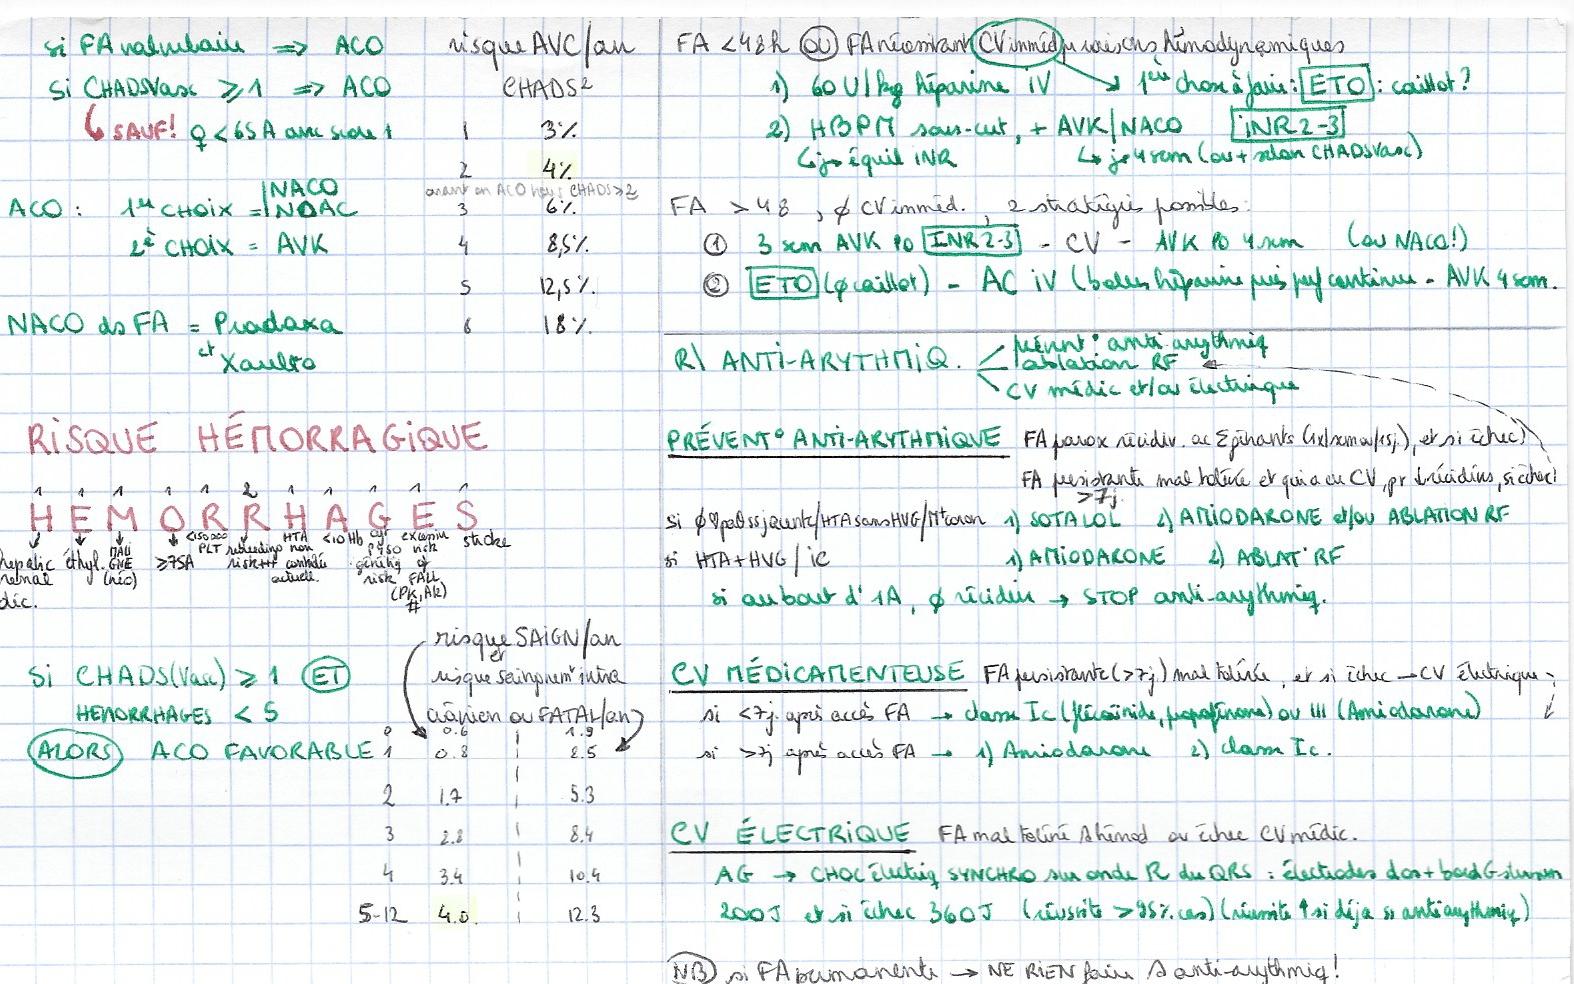 si FA valvulaire => ACO
si CHADSVasc ≥ 1 => ACO
↳ SAUF! ♀ < 65A avec score 1
ACO : 1er CHOIX = NACO
NOAC
2è CHOIX = AVK
NACO ds FA = Pradaxa
et
Xarelto
risque AVC/an
CHADS2
1 3%
2 4%
avant on ACO CHADS ≥ 2
3 6%
4 8,5%
5 12,5%
6 18%
RISQUE HÉMORRAGIQUE
1 1 1 1 1 2 1 1 1 1 1
H E M O R R H A G E S
hepatic
renal
dic.
éthyl.
MALIGNE
(néo)
≥75A
<150000
PLT
rebleeding
risk+++
HTA
non
contrôlée
actuell.
<10 Hb
cyt
P450
genetiq
risk
excessive
risk
of
FALL
(PK, Alz)
#
stroke
si CHADS(Vasc) ≥ 1 ET
HEMORRHAGES < 5
ALORS ACO FAVORABLE
risque SAIGN/an
et
risque saignem't intra
crânien ou FATAL/an
0 0.6 1.9
1 0.8 2.5
2 1.7 5.3
3 2.8 8.4
4 3.4 10.4
5-12 4.0 12.3
FA < 48h OU FA nécessitant CV imméd pr raisons hémodynamiques
1) 60 U/kg héparine IV → 1ère chose à faire : ETO : caillot?
2) HBPM sous-cut, + AVK/NACO INR 2-3
↳ jq équil INR ↳ jq 4 sem (ou + selon CHADSVasc)
FA > 48, ∅ CV imméd., 2 stratégies possibles :
① 3 sem AVK PO INR 2-3 - CV - AVK PO 4 sem (ou NACO!)
② ETO (∅ caillot) - AC IV (bolus héparine puis perf continue - AVK 4 sem.
R\ ANTI-ARYTHMIQ.
prévent° anti-arythmiq
ablation RF
CV médic et/ou électrique
PRÉVENT° ANTI-ARYTHMIQUE FA parox récidiv. ac Σpihants (1x/sema/15j.), et si échec)
FA persistante mal tolérée et qui a eu CV, pr ↓ récidives, si échec)
>7j
si ∅ ♡ pathossjacente/HTA sans HVG/Mt coron 1) SOTALOL 2) AMIODARONE et/ou ABLATION RF
si HTA + HVG / ic 1) AMIODARONE 2) ABLAT° RF
si au bout d'1A, ∅ récidive → STOP anti-arythmiq.
CV MÉDICAMENTEUSE FA persistante (>7j) mal tolérée, et si échec → CV électrique
si <7j. après accès FA → classe Ic (flécaïnide, propafénone) ou III (Amiodarone)
si >7j après accès FA → 1) Amiodarone 2) classe Ic.
CV ÉLECTRIQUE FA mal toléré hémod ou échec CV médic.
AG → CHOC électriq SYNCHRO sur onde R du QRS : électrodes dos + bord G sternum
200J et si échec 360J (réussite >95% cas) (réussite ↑ si déjà ss antiarythmiq)
NB si FA permanente → NE RIEN faire anti-arythmiq!